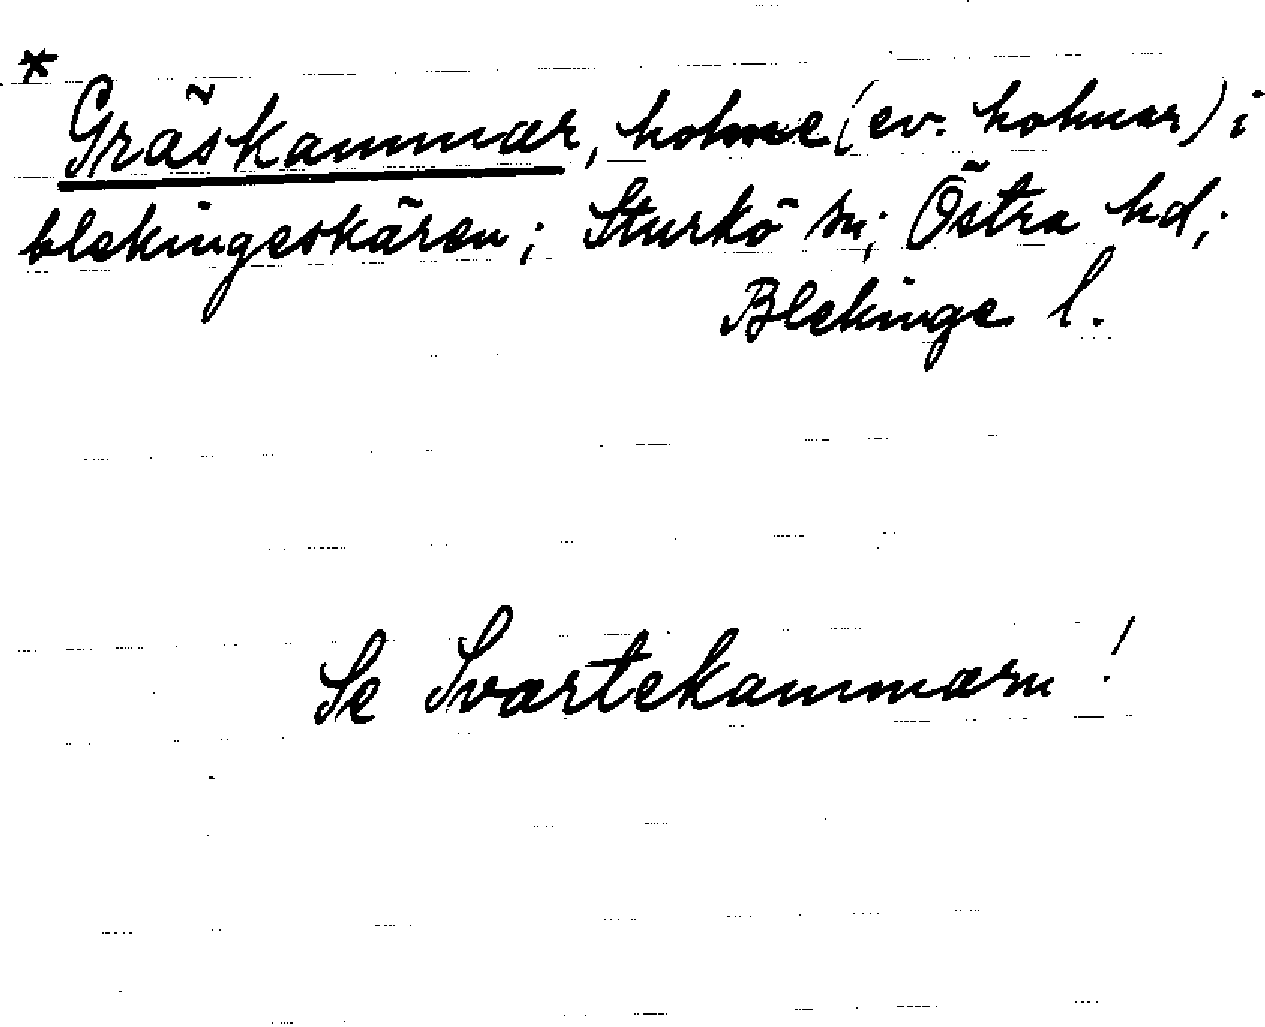 * Gräskammar, holme (ev. holmar) i
blekingeskären; Sturkö sn; Östra hd;
Blekinge l.
Se Svartekammarn!